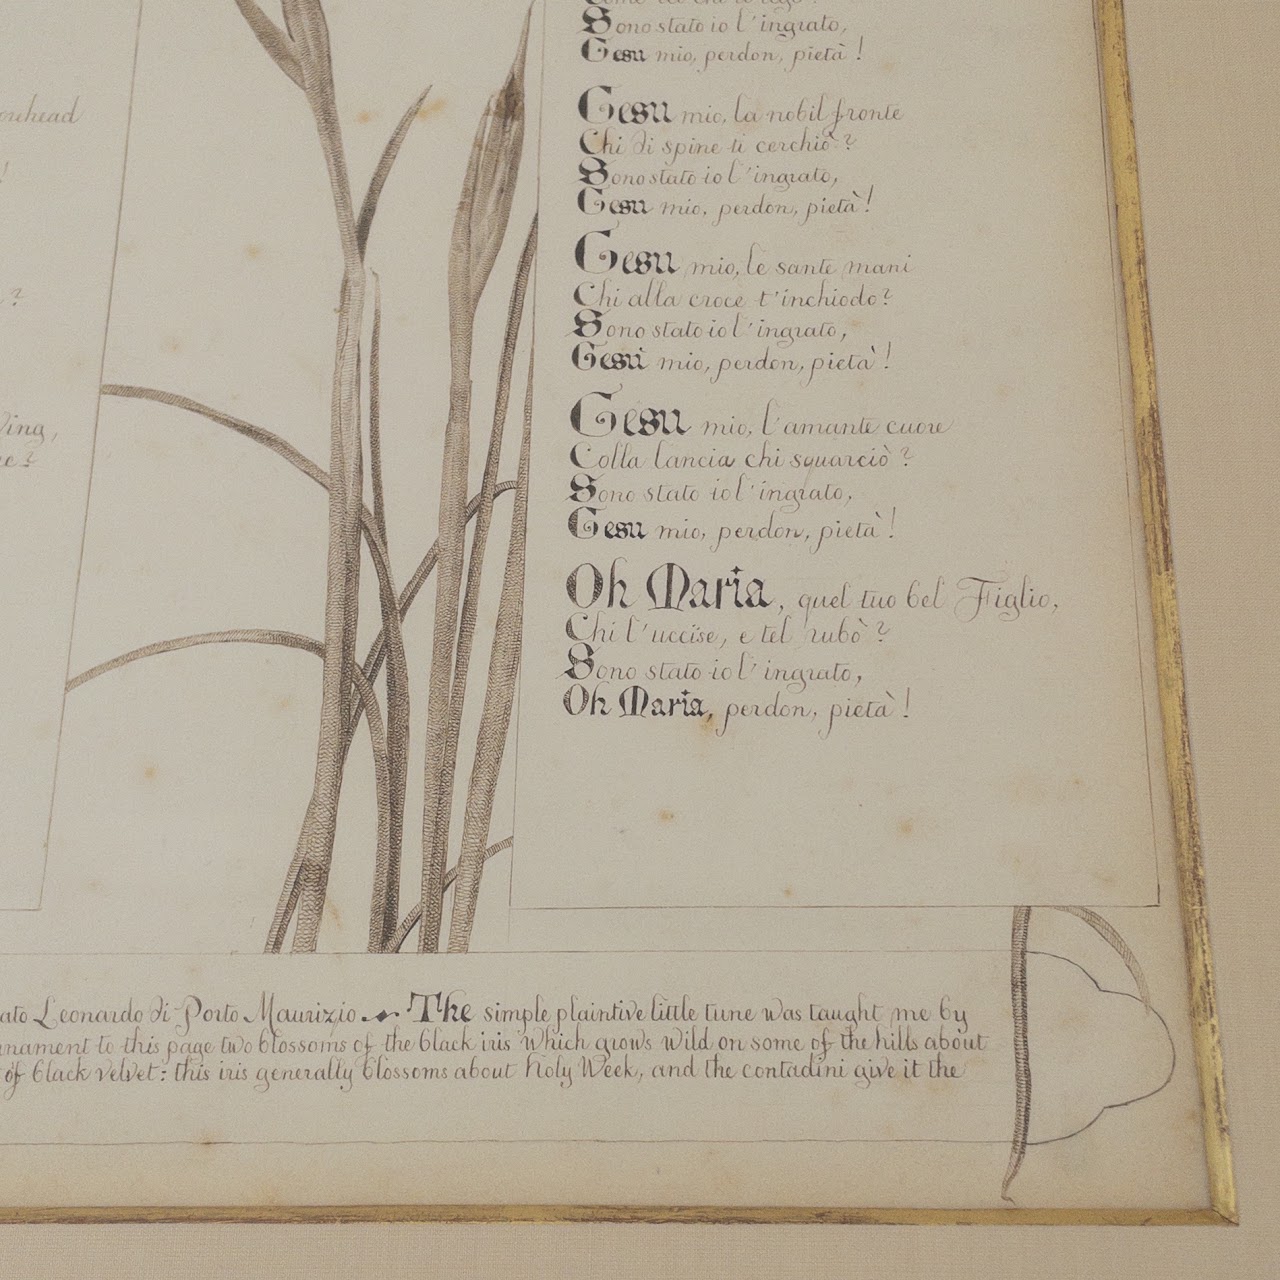 Sono stato io l'ingrato,
Gesu mio, perdon, pietà!
Gesu mio, la nobil fronte
Chi di spine ti cerchiò?
Sono stato io l'ingrato,
Gesu mio, perdon, pietà!
Gesu mio, le sante mani
Chi alla croce t'inchiodo?
Sono stato io l'ingrato,
Gesù mio, perdon, pietà!
Gesu mio, l'amante cuore
Colla lancia chi squarciò?
Sono stato io l'ingrato,
Gesu mio, perdon, pietà!
Oh Maria, quel tuo bel Figlio,
Chi l'uccise, e tel rubò?
Sono stato io l'ingrato,
Oh Maria, perdon, pietà!
Leonardo di Porto Maurizio The simple plaintive little tune was taught me by
to this page two blossoms of the black iris which grows wild on some of the hills about
of black velvet: this iris generally blossoms about Holy Week, and the contadini give it the